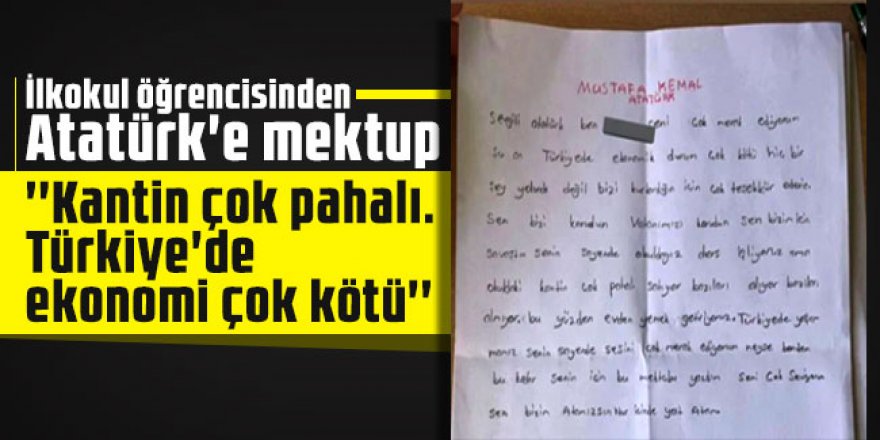 İlkokul öğrencisinden
Atatürk'e mektup
"Kantin çok pahalı.
Türkiye'de
ekonomi çok kötü"
MUSTAFA KEMAL
ATATÜRK
Sevgili atatürk ben seni çok merak ediyorum
şu an Türkiyede ekonomik durum çok kötü hiç bir
şey yolunda değil bizi kurtardığın için çok teşekkür ederim.
Sen bizi korudun Vatanımızı korudun sen bizim için
savaştın senin sayende okuldayız ders işliyoruz ama
okuldaki kantin çok pahalı satıyor bazıları alıyor bazıları
alamıyor. bu yüzden evden yemek getiriyoruz. Türkiyede
senin sayende sesini çok merak ediyorum neyse benden
bu kadar senin için bu mektubu yazdım Seni Çok Seviyorum
sen bizim Atamızsın Nur içinde yat Atam